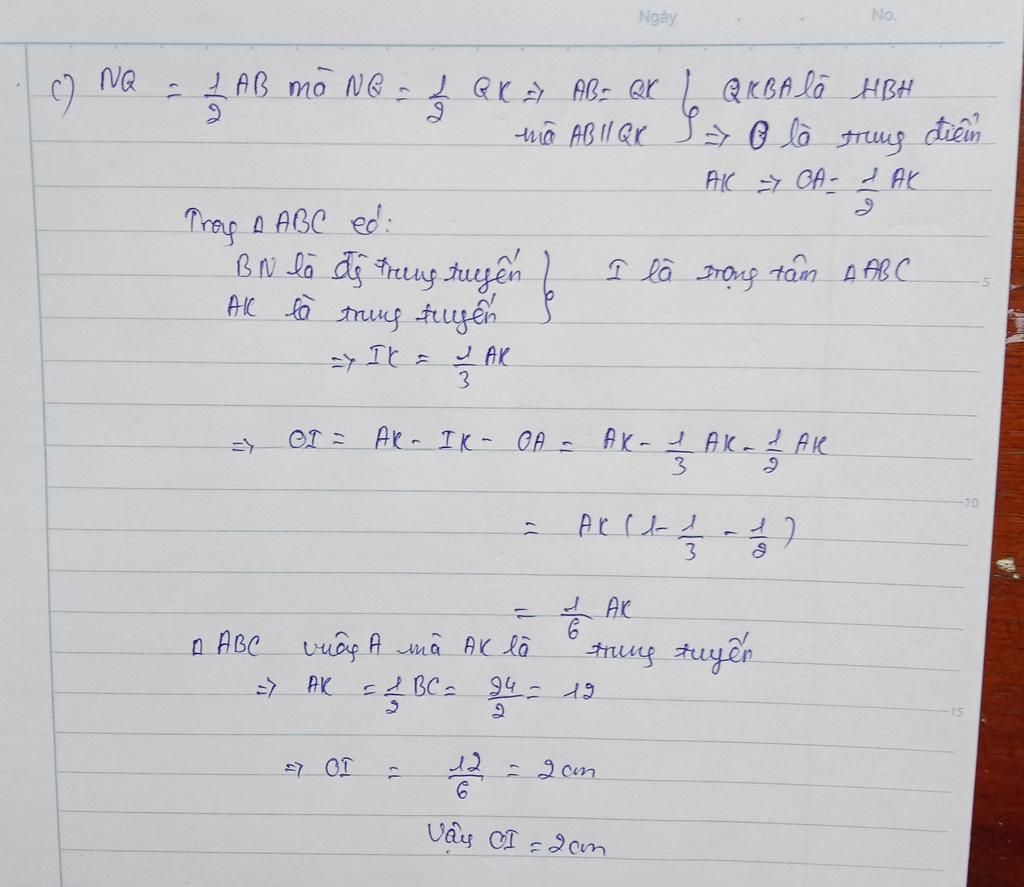 Ngày . . No.
c) NQ = 1/2 AB mà NQ = 1/2 QK => AB = QK } QKBA là HBH
mà AB // QK => O là trung điểm
AK => OA = 1/2 AK
Trong Δ ABC có:
BN là đg trung tuyến } I là trọng tâm Δ ABC
5
AK là trung tuyến
=> IK = 1/3 AK
=> OI = AK - IK - OA = AK - 1/3 AK - 1/2 AK
10
= AK (1 - 1/3 - 1/2)
= 1/6 AK
Δ ABC vuông A mà AK là trung tuyến
=> AK = 1/2 BC = 24/2 = 12
15
=> OI = 12/6 = 2cm
Vậy OI = 2cm